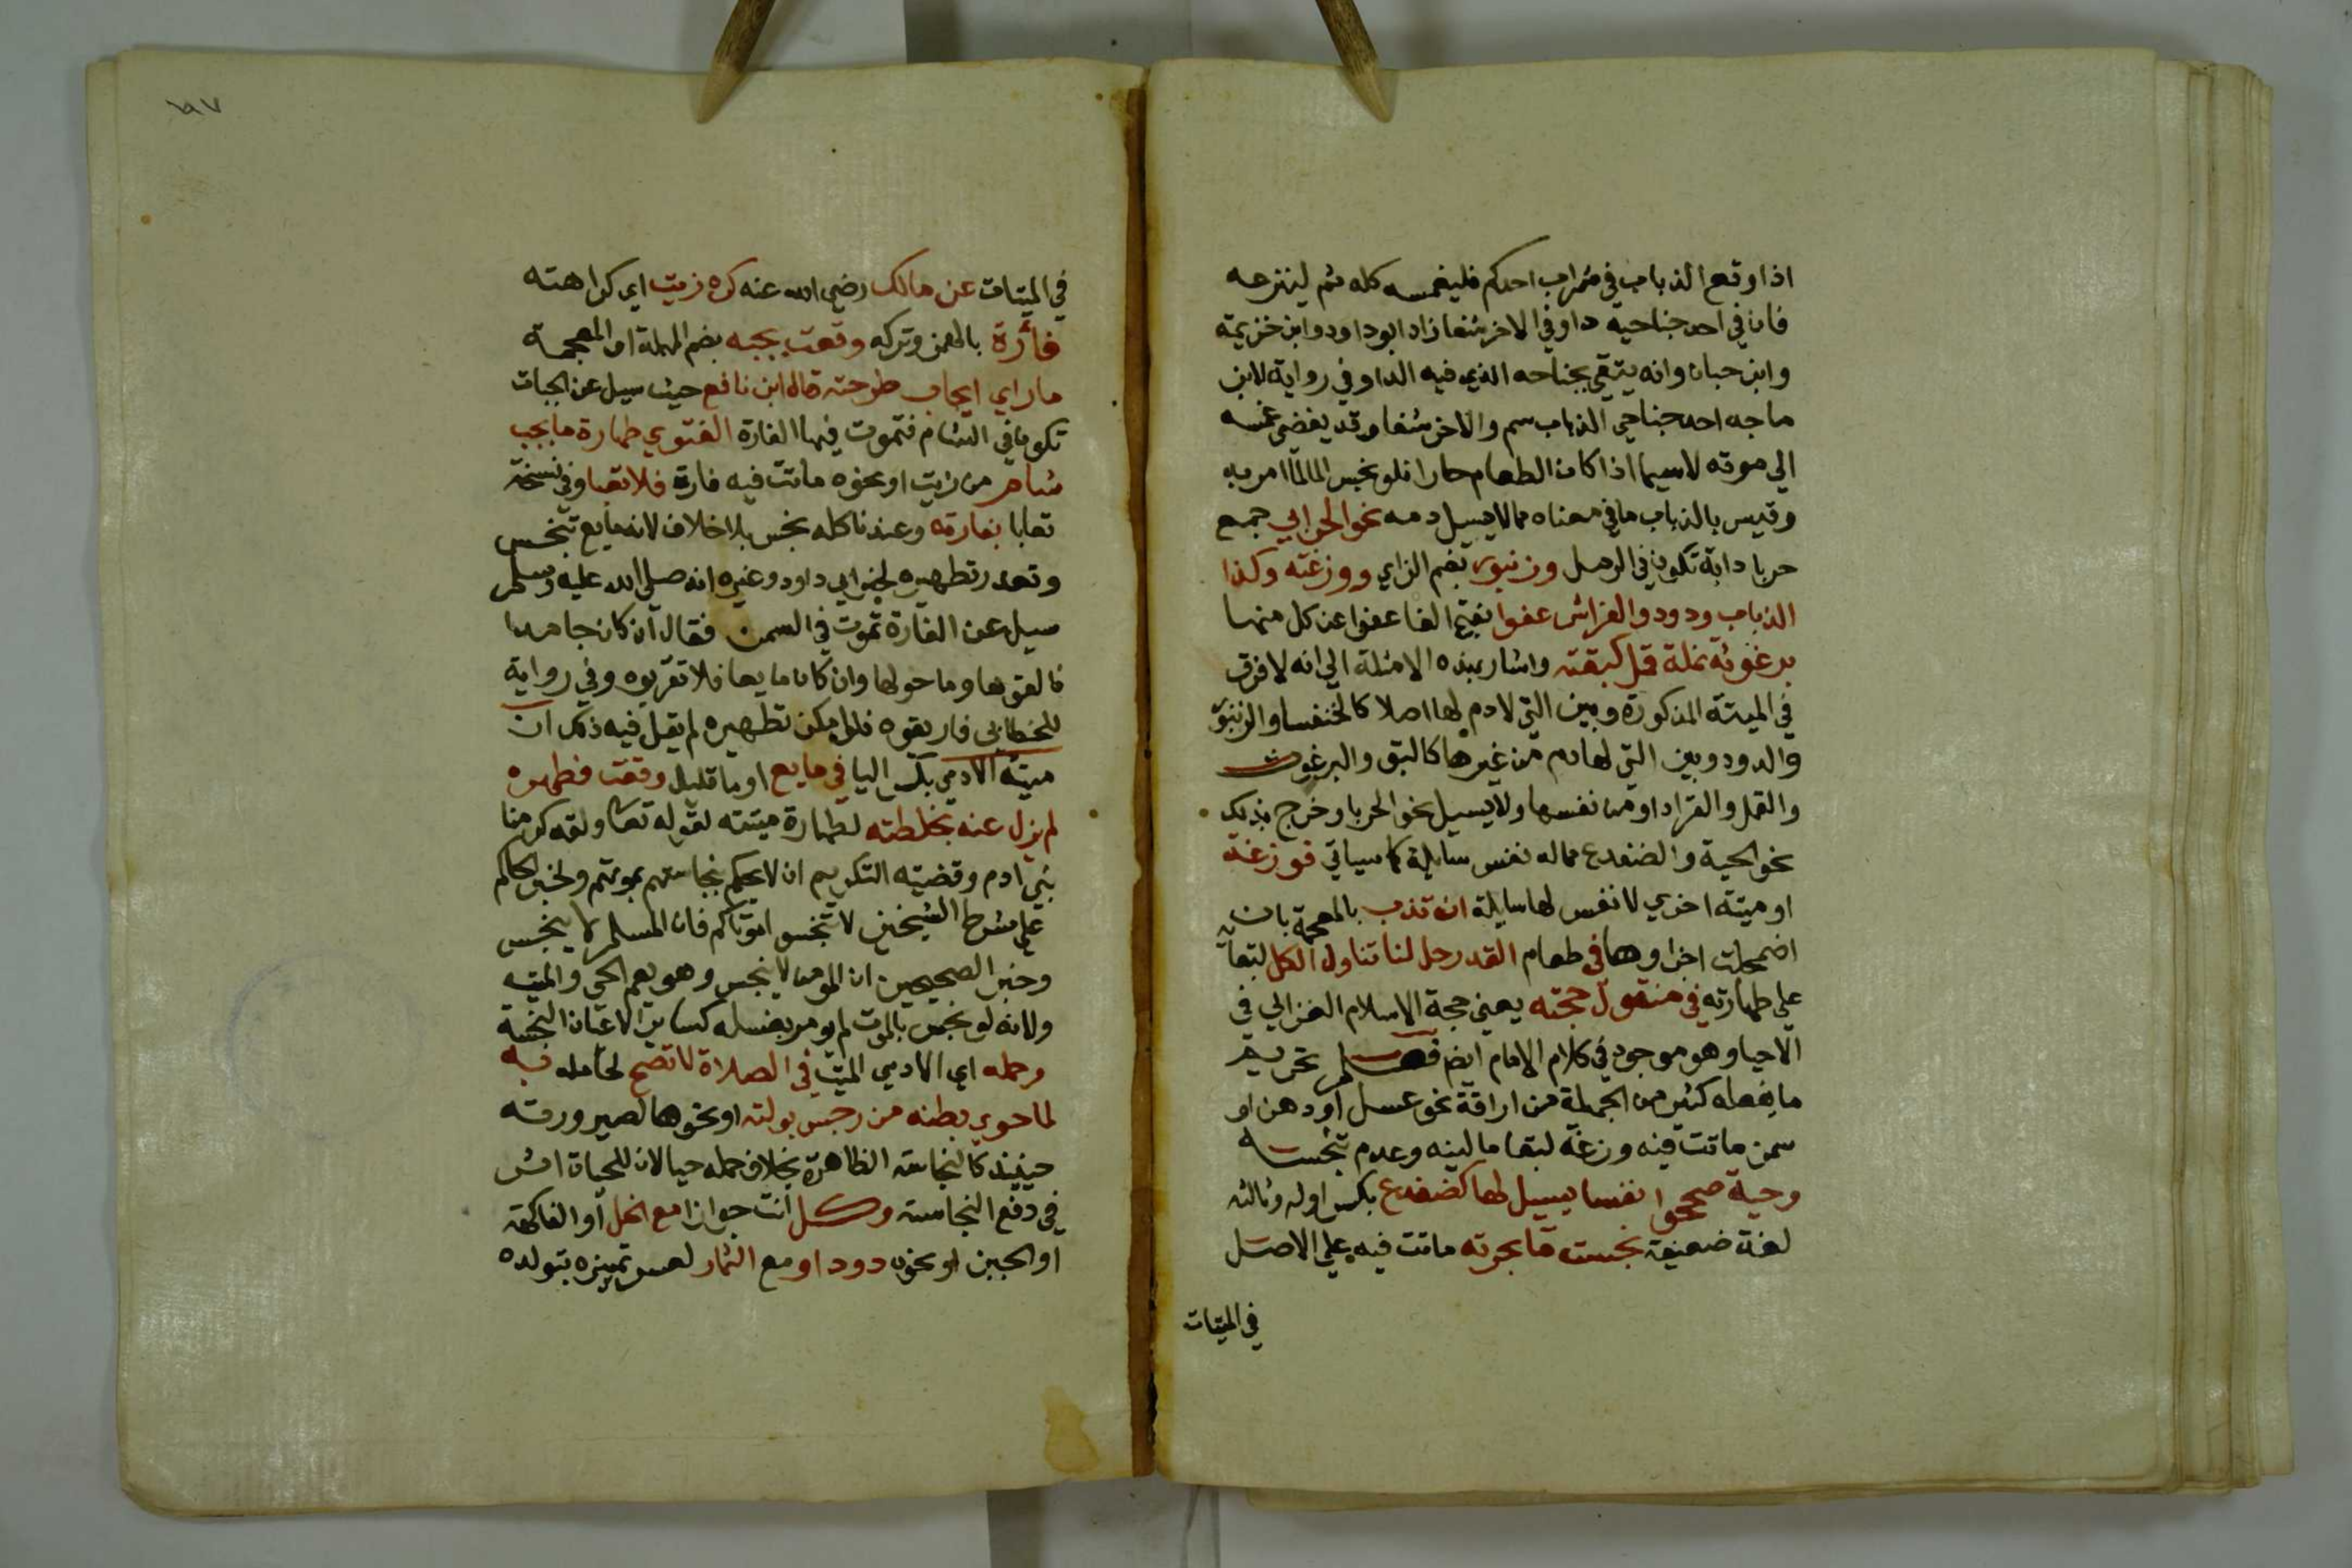 اذا وقع الذباب في شراب احدكم فليغمسه كله ثم لينزعه
فان في احد جناحيه داو في الاخر شفا زاد ابو داود وابن خزيمة
وابن حبان وانه يتقي بجناحه الذي فيه الدا وفي رواية لابن
ماجه احد جناحي الذباب سم والاخر شفا وقد يفضي غمسه
الي موته لاسيما اذا كان الطعام حارا فلو نجس المالما امر به
وقيس بالذباب ما في معناه مما لا يسيل دمه نحو الحرابي جمع
حربا دابة تكون في الرمل وزنبور بضم الزاي ووزغته وكذا
الذباب ودود والفراش عفوا بفتح الفا عفوا عن كل منها
برغوثه نملة قمل كبقته واشار بهذه الامثلة الي انه لا فرق
في الميتة المذكورة وبين التي لادم لها اصلا كالخنفسا والزنبور
والدود وبين التي لها دم من غيرها كالبق والبرغوث
والقمل والقراد او من نفسها ولا يسيل نحو الحربا وخرج بذلك
نحو الحية والضفدع مما له نفس سايلة كما سياتي فوزغة
او ميتة اخري لا نفس لها سايلة ان تذب بالمعجمة بان
اضمحلت اجزاوها في طعام القدر حل لنا تناول الكل لبقا
علي طهارته في منقول حجته يعني حجة الاسلام الغزالي في
الاحيا وهو موجود في كلام الامام ايضا تحريم
ما يفعله كثير من الجهلة من اراقة نحو عسل او دهن او
سمن ماتت فيه وزغة لبقا ماليته وعدم تنجسه
وحية صححوا نفسا يسيل لها كضفدع بكسر اوله وثالثه
لغة ضعيفة نجست ما بحرته ماتت فيه علي الاصل
في الميتات
في الميتات عن مالك رضي الله عنه كره زيت اي كراهته
فأرة بالهمز وتركه وقعت بجبه بضم المهملة او المعجمة
ما راي ايجاب طرحته قاله ابن نافع حيث سيل عن الجبات
تكون في الشام فتموت فيها الفارة الفتوي طهارة ما بجب
شاهر من زيت او نحوه ماتت فيه فارة فلا تعبا وفي نسخة
تعابا بفارته وعندنا كله نجس بلا خلاف لانه مايع تنجس
وتعذر تطهيره لخبر ابي داود وغيره انه صلي الله عليه وسلم
سيل عن الفارة تموت في السمن فقال ان كان جامدا
فالقوها وما حولها وان كان مايعا فلا تقربوه وفي رواية
للخطابي فاريقوه فلو امكن تطهيره لم يقل فيه ذلك ان
ميتة الادمي اليا في مايع او ما قليل وقعت فطهره
لم يزل عنه بخلطته لطهارة ميتته لقوله تعالي ولقد كرمنا
بني ادم وقضيته التكريم ان لا يحكم بنجاستهم بموتهم ولخبر الحاكم
علي شرط الشيخين لا تنجسوا موتاكم فان المسلم لا ينجس
وخبر الصحيحين ان المومن لا ينجس وهو يعم الحي والميت
ولانه لو نجس بالموت لم يومر بغسله كساير الاعيان النجسة
وحمله اي الادمي الميت في الصلاة لا تصح لحامله فيه
لما حوي بطنه من رجس بولته او نحوها لصيرورته
حينيذ كالنجاسة الظاهرة بخلاف حمله حيا لان للحياة اثر
في دفع النجاسة وكل انت جوازا مع الخل او الفاكهة
او الجبن او نحوه دود او مع الثمار لعسر تمييزه بتولده